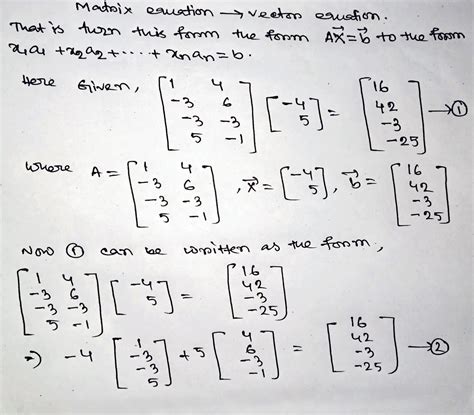 Matrix equation → vector equation.
That is turn this form the form Ax⃗ = b⃗ to the form
x₁a₁ + x₂a₂ + ... + xₙaₙ = b.
Here Given, [1 4; -3 6; -3 -3; 5 -1] [-4; 5] = [16; 42; -3; -25] → ①
where A = [1 4; -3 6; -3 -3; 5 -1], x⃗ = [-4; 5], b⃗ = [16; 42; -3; -25]
Now ① can be written as the form,
[1 4; -3 6; -3 -3; 5 -1] [-4; 5] = [16; 42; -3; -25]
⇒ -4 [1; -3; -3; 5] + 5 [4; 6; -3; -1] = [16; 42; -3; -25] → ②